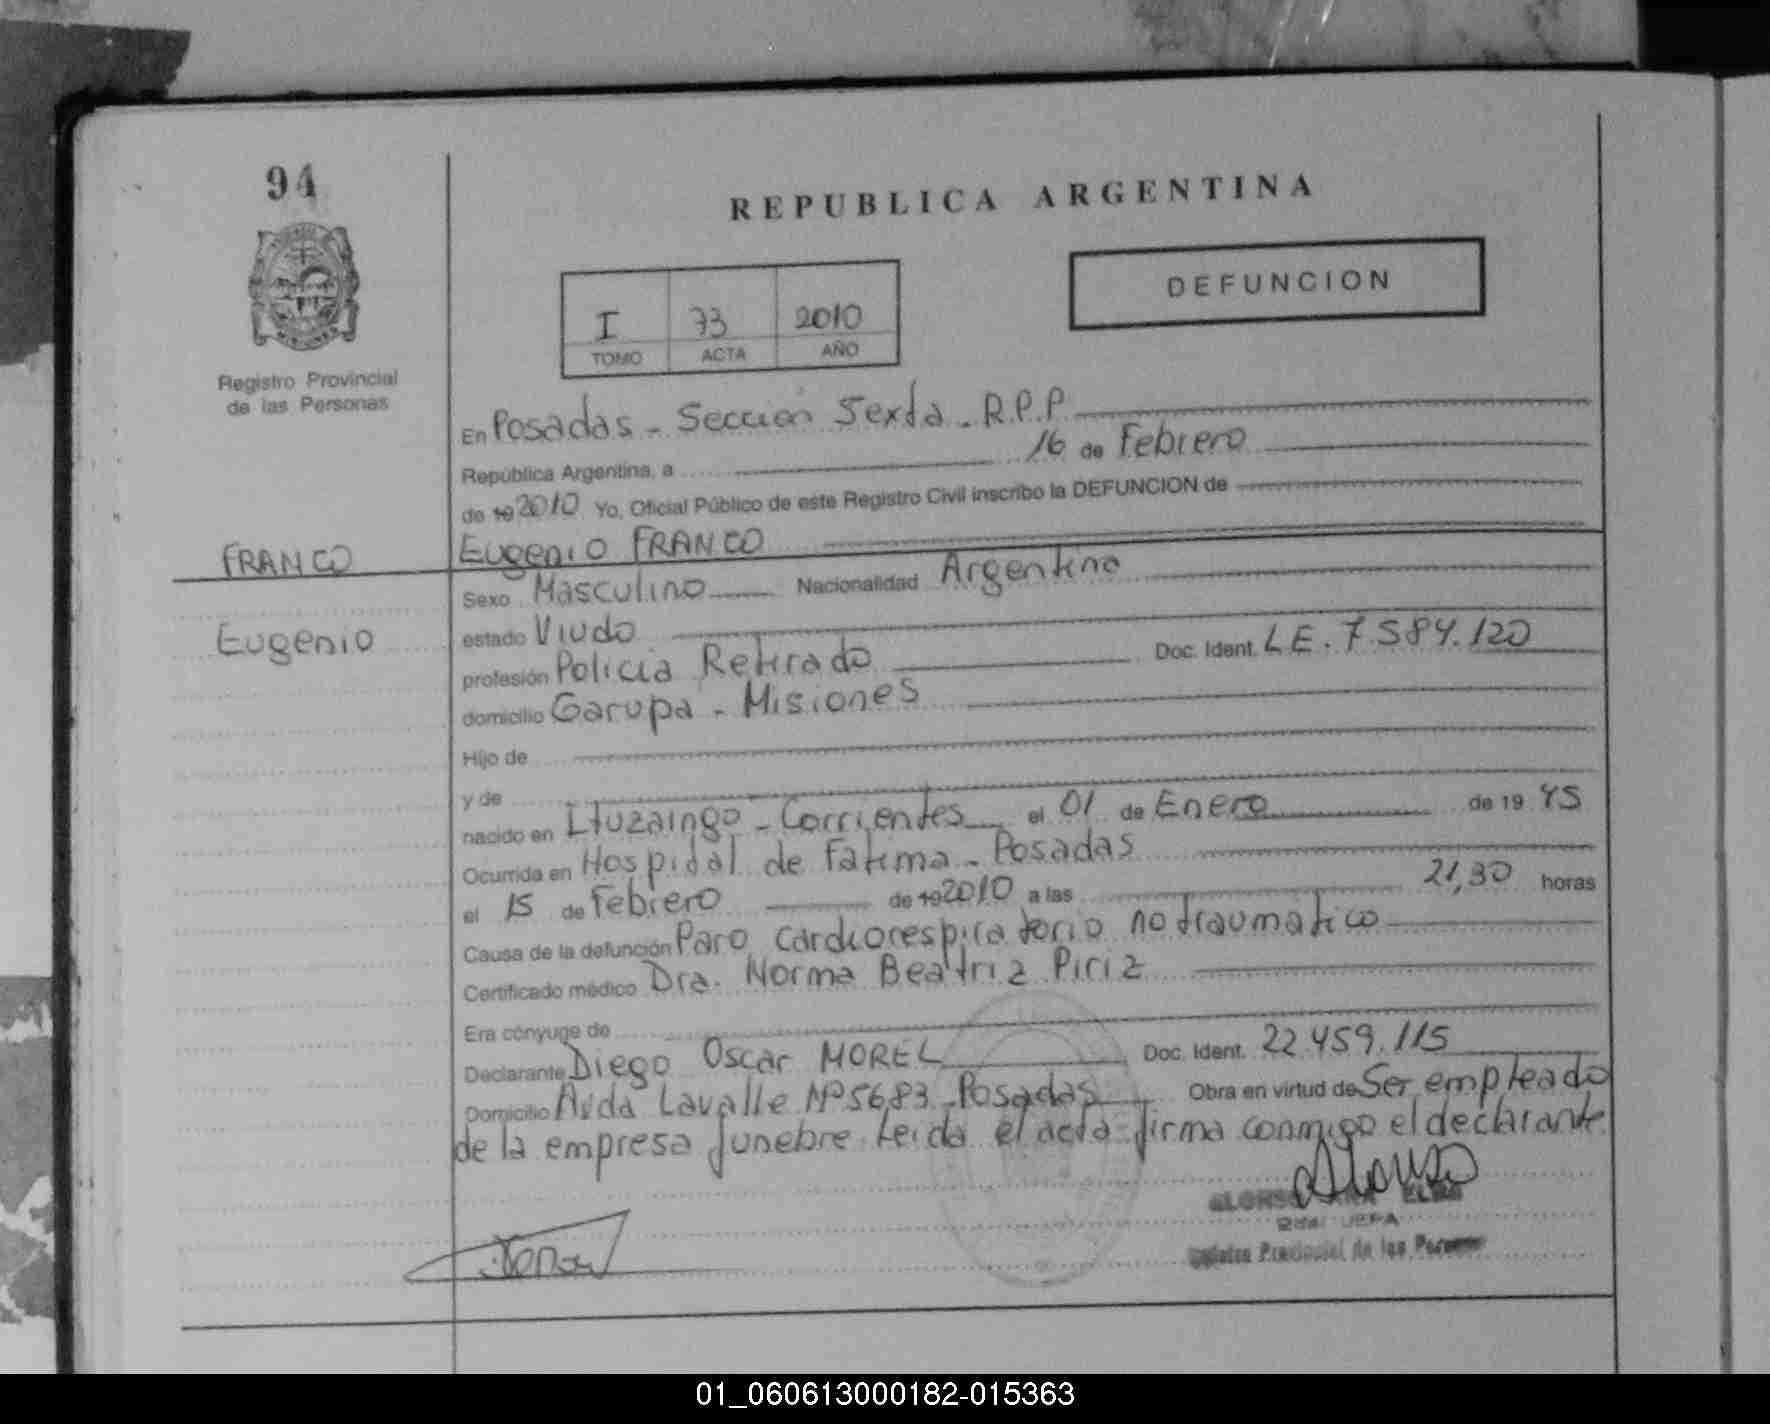 94
REPUBLICA ARGENTINA
DEFUNCION
I 73 2010
TOMO ACTA AÑO
Registro Provincial
de las Personas
En Posadas - Sección Sexta - R.P.P
República Argentina, a 16 de Febrero
de 19 2010 Yo, Oficial Público de este Registro Civil inscribo la DEFUNCION de
FRANCO
Eugenio FRANCO
Sexo Masculino Nacionalidad Argentino
Eugenio
estado Viudo
profesión Policia Retirado Doc. Ident. L.E. 7.584.120
domicilio Garupa - Misiones
Hijo de
y de
nacido en Ituzaingo - Corrientes el 01 de Enero de 19 45
Ocurrida en Hospital de Fatima - Posadas
el 15 de Febrero de 19 2010 a las 21,30 horas
Causa de la defunción Paro cardiorespiratorio no traumatico
Certificado médico Dra. Norma Beatriz Piriz
Era cónyuge de
Declarante Diego Oscar MOREL Doc. Ident. 22.459.115
Domicilio Avda Lavalle Nº 5683 - Posadas Obra en virtud de Ser empleado
de la empresa funebre. Leida el acta firma conmigo el declarante.
Provincial de las Personas
01_060613000182-015363